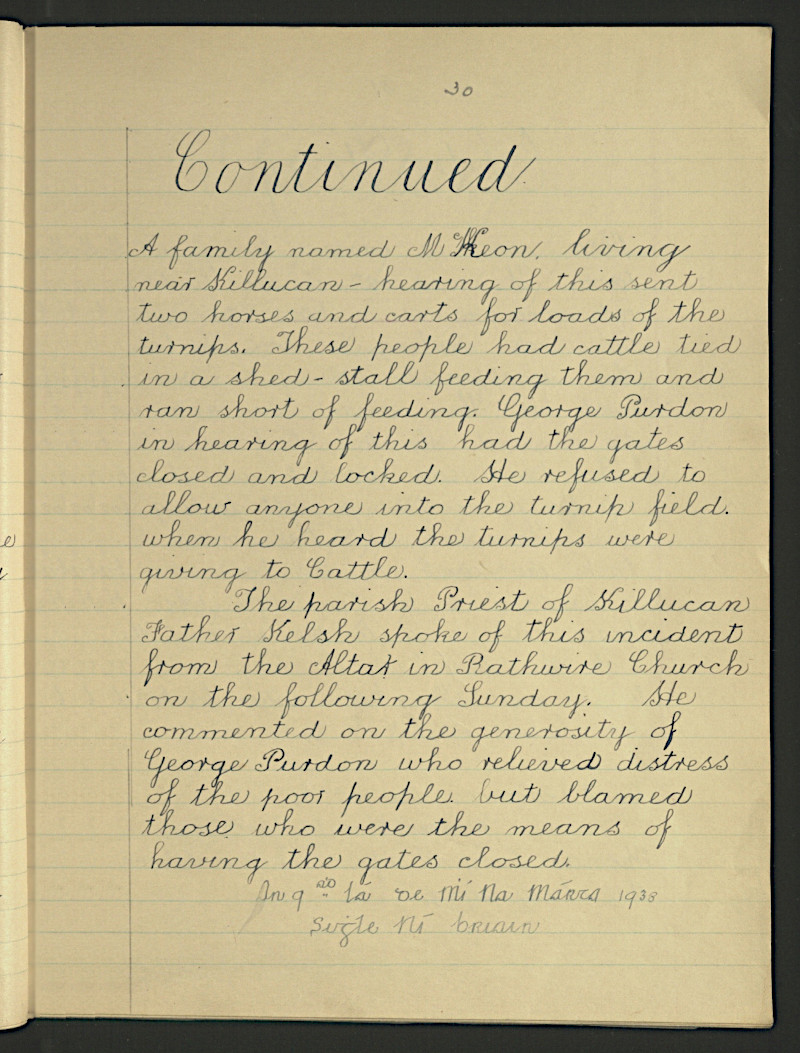 30
Continued
A family named McKeon, living
near Killucan - hearing of this sent
two horses and carts for loads of the
turnips. These people had cattle tied
in a shed - stall feeding them and
ran short of feeding. George Purdon
in hearing of this had the gates
closed and locked. He refused to
allow anyone into the turnip field.
when he heard the turnips were
giving to Cattle.
The parish Priest of Killucan
Father Kelsh spoke of this incident
from the Altar in Rathwire Church
on the following Sunday. He
commented on the generosity of
George Purdon who relieved distress
of the poor people. but blamed
those who were the means of
having the gates closed.
An 9ad lá de Mí Na Márta 1938
Síġle Ní Briain